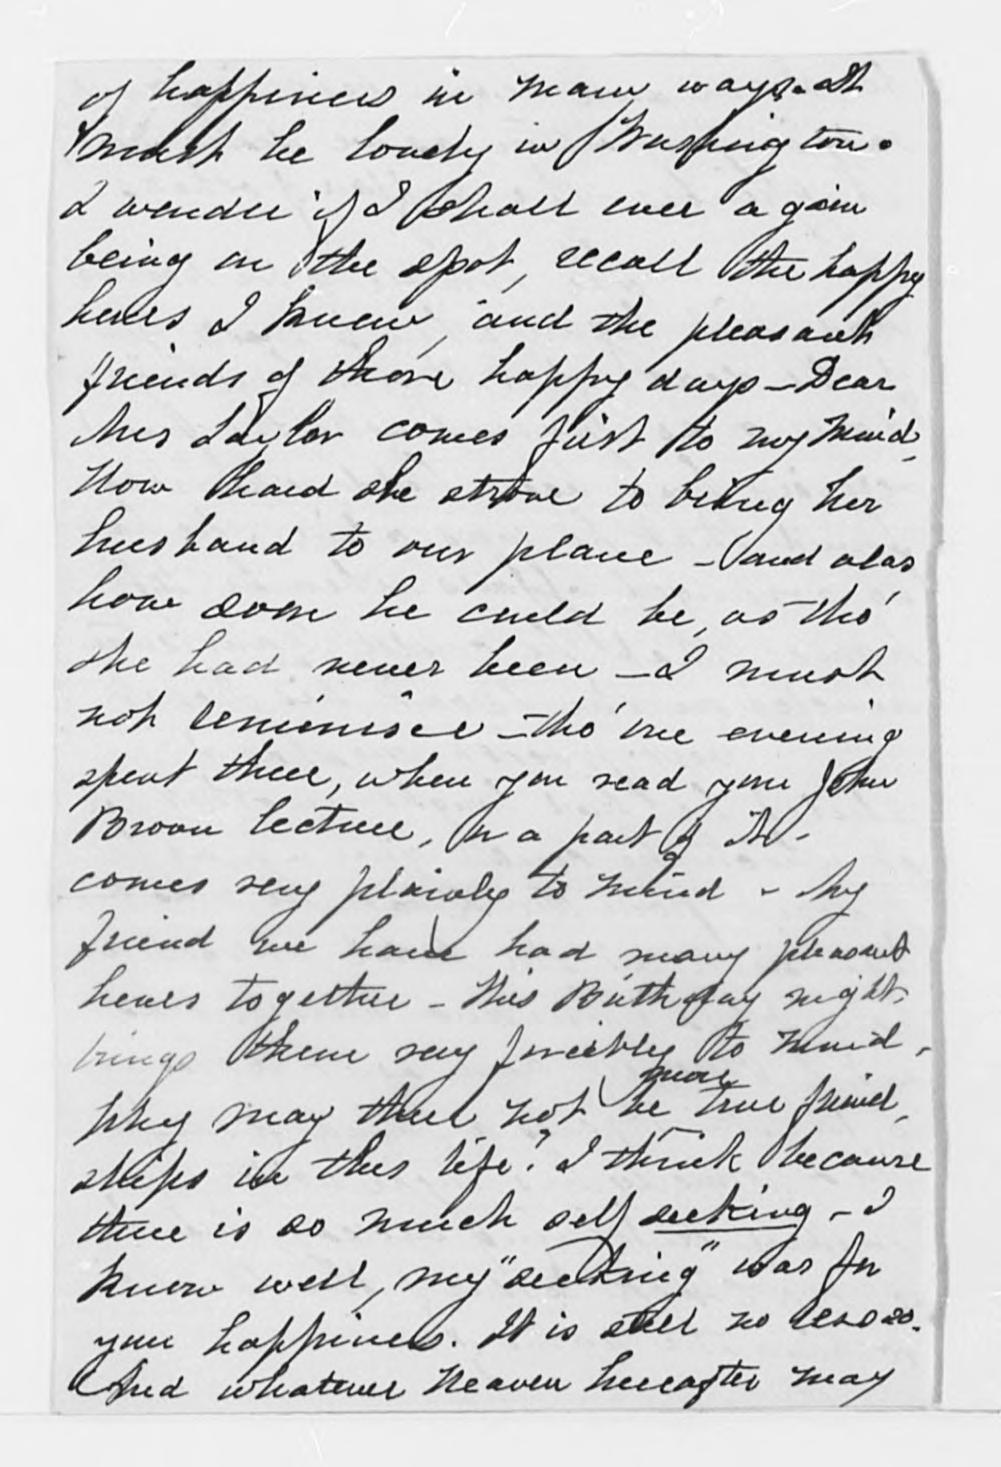 of happiness in many ways. It
must be lovely in Washington.
I wonder if I shall ever again
being on the spot, recall the happy
hours I knew, and the pleasant
friends of those happy days — Dear
Mrs Taylor comes first to my mind,
How hard she strove to bring her
husband to our plane — and alas
how soon he could be, as tho'
she had never been — I must
not reminisce — tho' one evening
spent there, when you read your John
Brown lecture, or a part of it -
comes very plainly to mind - My
friend we have had many pleasant
hours together — this Birthday night
brings them very forcibly to mind.
Why may there not be more true friend
ships in this life? I think because
there is so much self seeking — I
know well, my "seeking" was for
your happiness. It is still no less so.
And whatever Heaven hereafter may